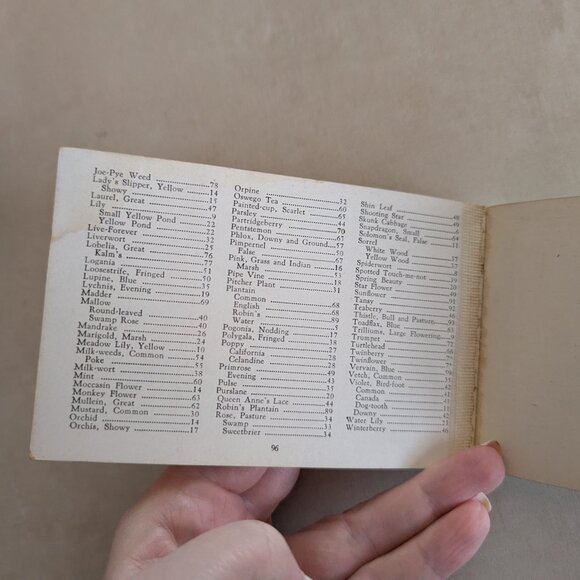 Joe-Pye Weed 78
Lady's Slipper, Yellow 14
Showy 15
Laurel, Great 47
Lily 9
Small Yellow Pond 22
Yellow Pond 22
Live-Forever 32
Liverwort 25
Lobelia, Great 76
Kalm's 77
Logania 51
Loosestrife, Fringed 50
Lupine, Blue 35
Lychnis, Evening 19
Madder 69
Mallow
Round-leaved 40
Swamp Rose 40
Mandrake 26
Marigold, Marsh 24
Meadow Lily, Yellow 10
Milk-weeds, Common 54
Poke 55
Milk-wort 38
Mint 60
Moccasin Flower 14
Monkey Flower 63
Mullein, Great 62
Mustard, Common 30
Orchid 14
Orchis, Showy 17
Orpine 32
Oswego Tea
Painted-cup, Scarlet 65
Parsley
Partridgeberry 70
Pentstemon
Phlox, Downy and Ground 57
Pimpernel
False 67
Pink, Grass and Indian 16
Marsh
Pipe Vine 18
Pitcher Plant 31
Plantain
Common 68
English 68
Robin's 89
Water 5
Pogonia, Nodding 17
Polygala, Fringed 38
Poppy
California 28
Celandine 28
Primrose 49
Evening 43
Pulse 35
Purslane 20
Queen Anne's Lace 44
Robin's Plantain 89
Rose, Pasture 34
Swamp 33
Sweetbrier 34
Shin Leaf 48
Shooting Star 49
Skunk Cabbage
Snapdragon, Small 64
Solomon's Seal, False 11
Sorrel
White Wood 37
Yellow Wood 37
Spiderwort
Spotted Touch-me-not 39
Spring Beauty
Star Flower 49
Sunflower
Tansy
Teaberry
Thistle, Bull and Pasture 93
Toadflax, Blue
Trilliums, Large Flowering 9
Trumpet
Turtlehead
Twinberry
Twinflower
Vervain, Blue
Vetch, Common
Violet, Bird-foot
Common
Canada
Dog-tooth
Downy
Water Lily 21
Winterberry 46
96